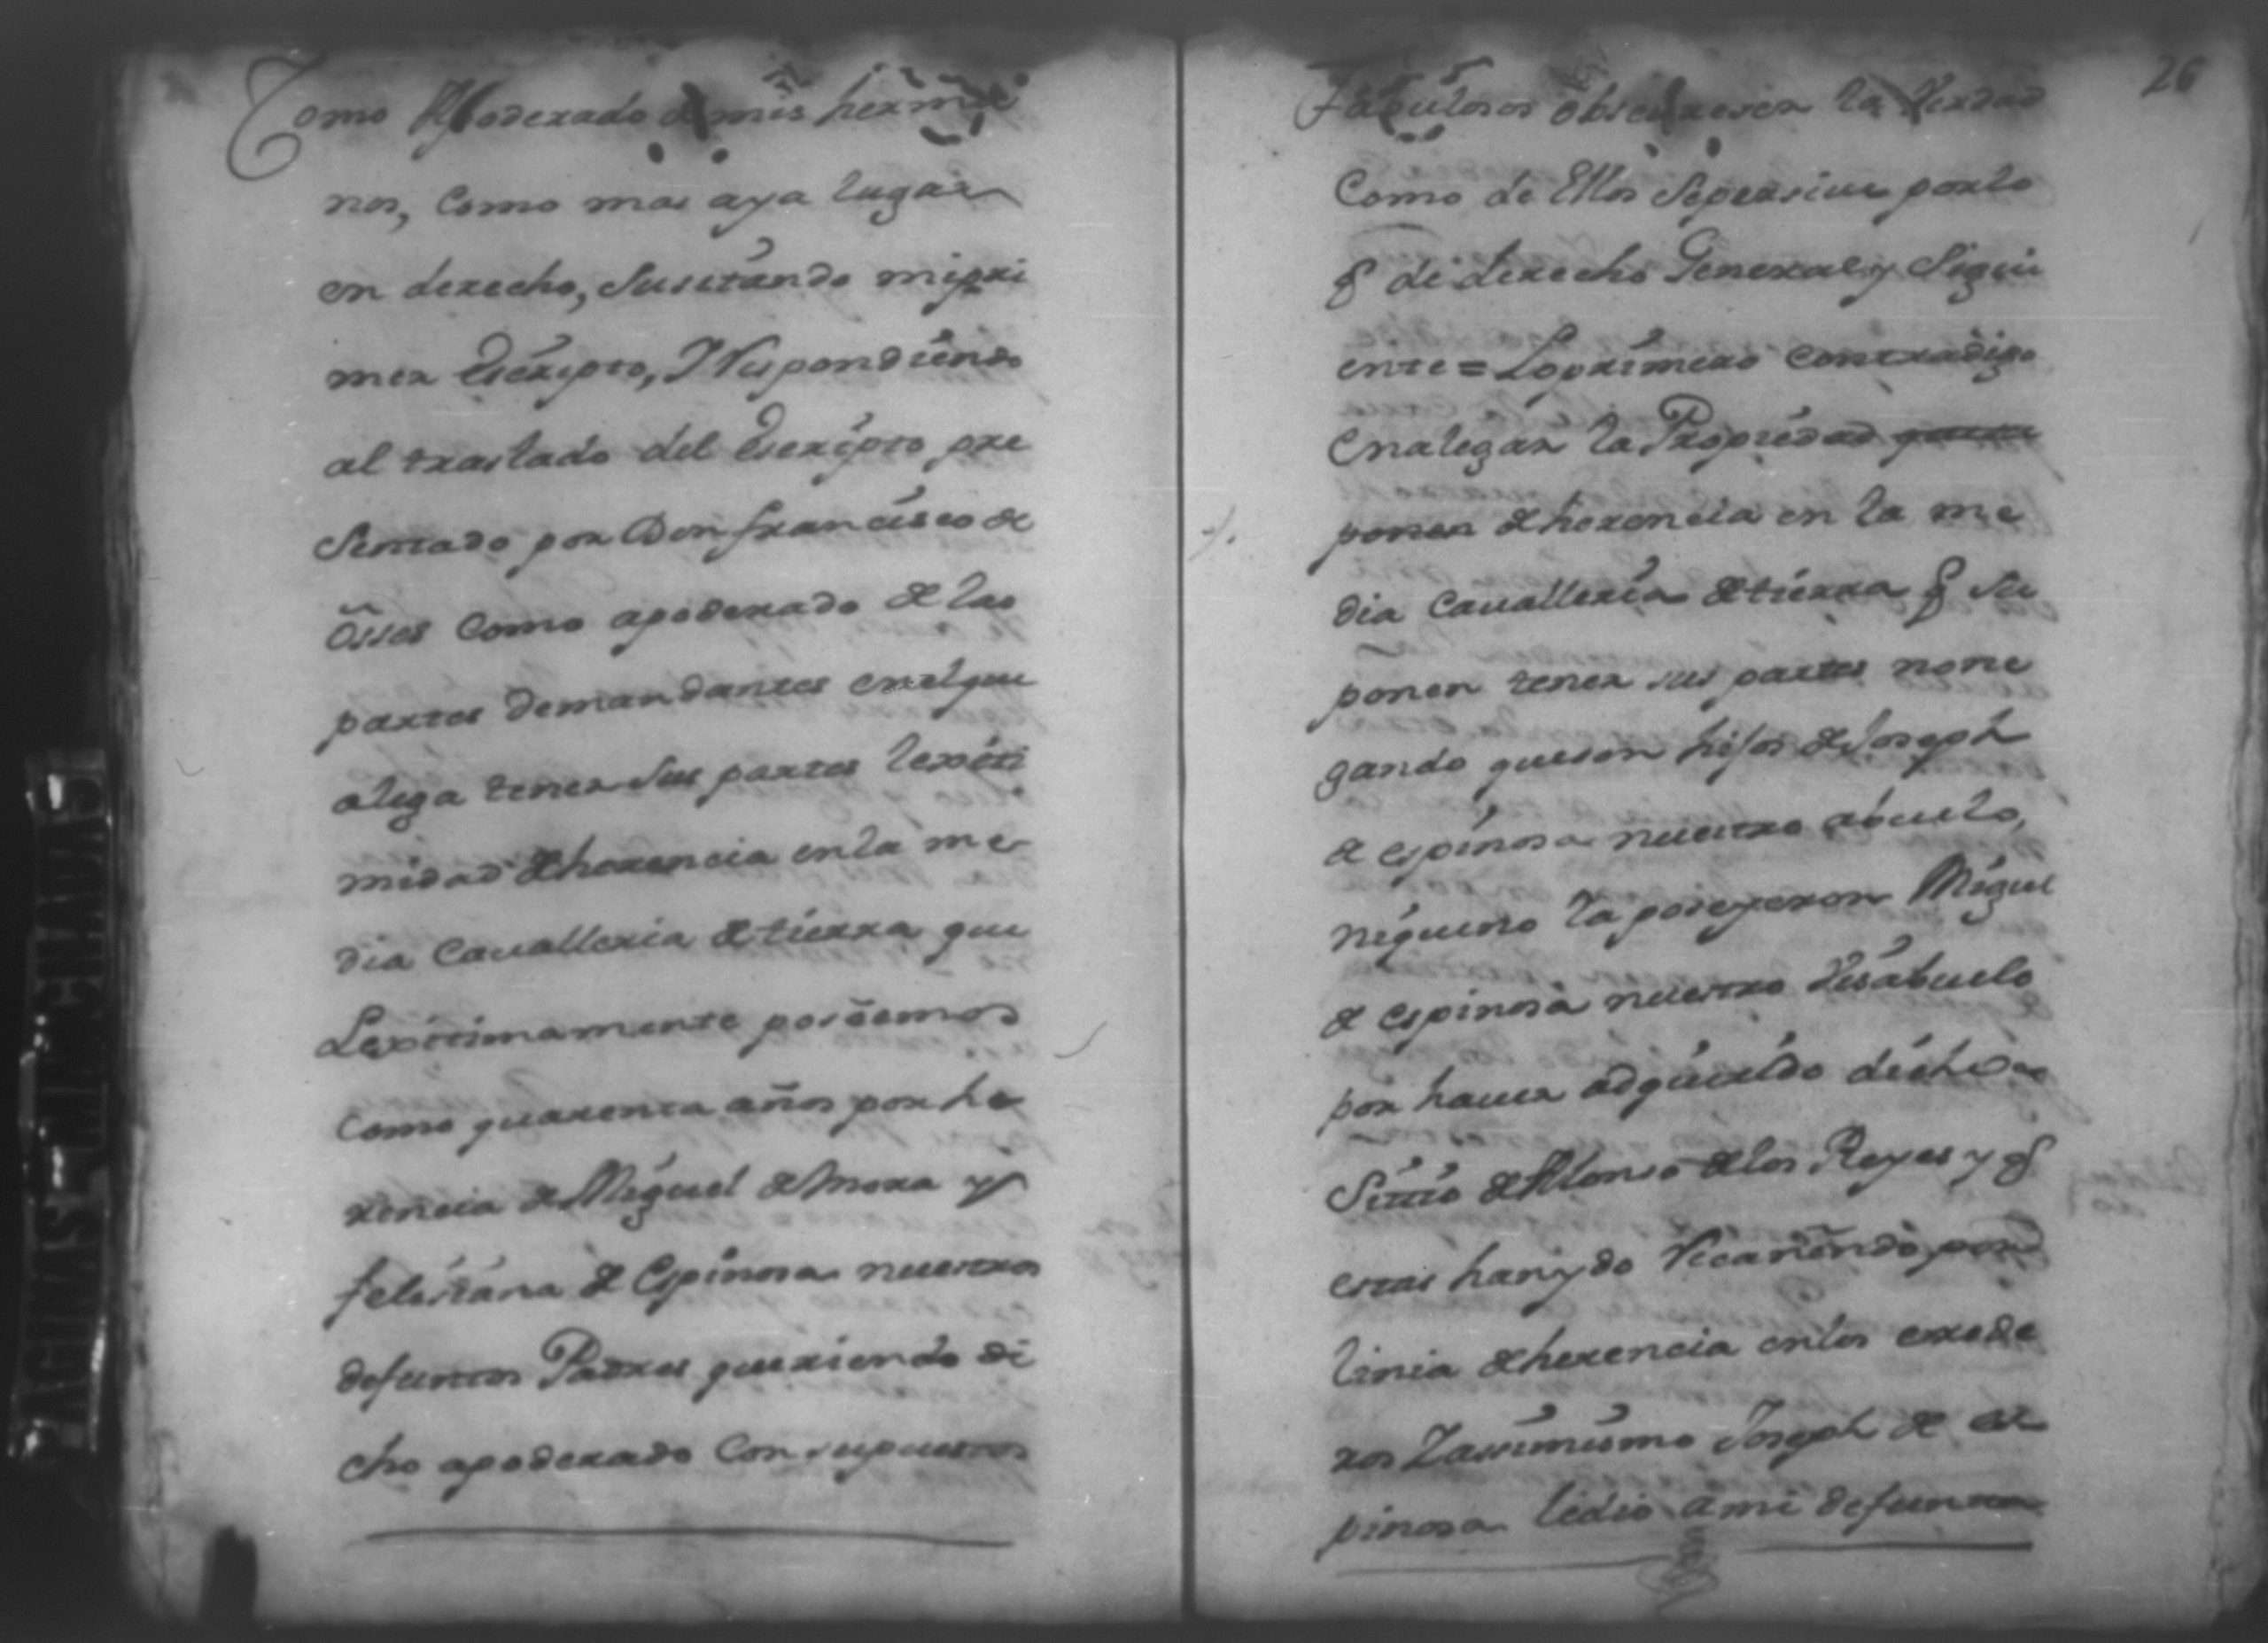 Como Apoderado de mis herma
nos, Como mas aya lugar
en derecho, Susitando mi pri
mer Escripto, Y Respondiendo
al traslado del Escripto pre
Sentado por Don francisco de
Osses Como apoderado de las
partes demandantes en el que
alega tener Sus partes lexiti
midad de herencia en la me
dia Cavalleria de tierra que
Lexitimamente poseemos
Como quarenta años por he
rencia de Miguel de Mora y
felisiana de Espinosa nuestros
defuntos Padres queriendo di
cho apoderado Con supuestos
26
Fabulosos obscureser la Verdad
Como de Ellos Se persive por lo
q de derecho General y Sigui
ente = Lo primero Contradigo
en alegar la Propiedad
ponen de herencia en la me
dia Cavalleria de tierra q Su
ponen tener sus partes no ne
gando que son hijos de Joseph
de espinosa nuestro abuelo,
ni que no la poseyeron Miguel
de espinosa nuestro Visabuelo
por haver adquirido dicho
Sittio de Alonso de los Reyes y q
estas han ydo Recaiendo por
linia de herencia en los erede
ros Y assimismo Joseph de es
pinosa le dio a mi defunta